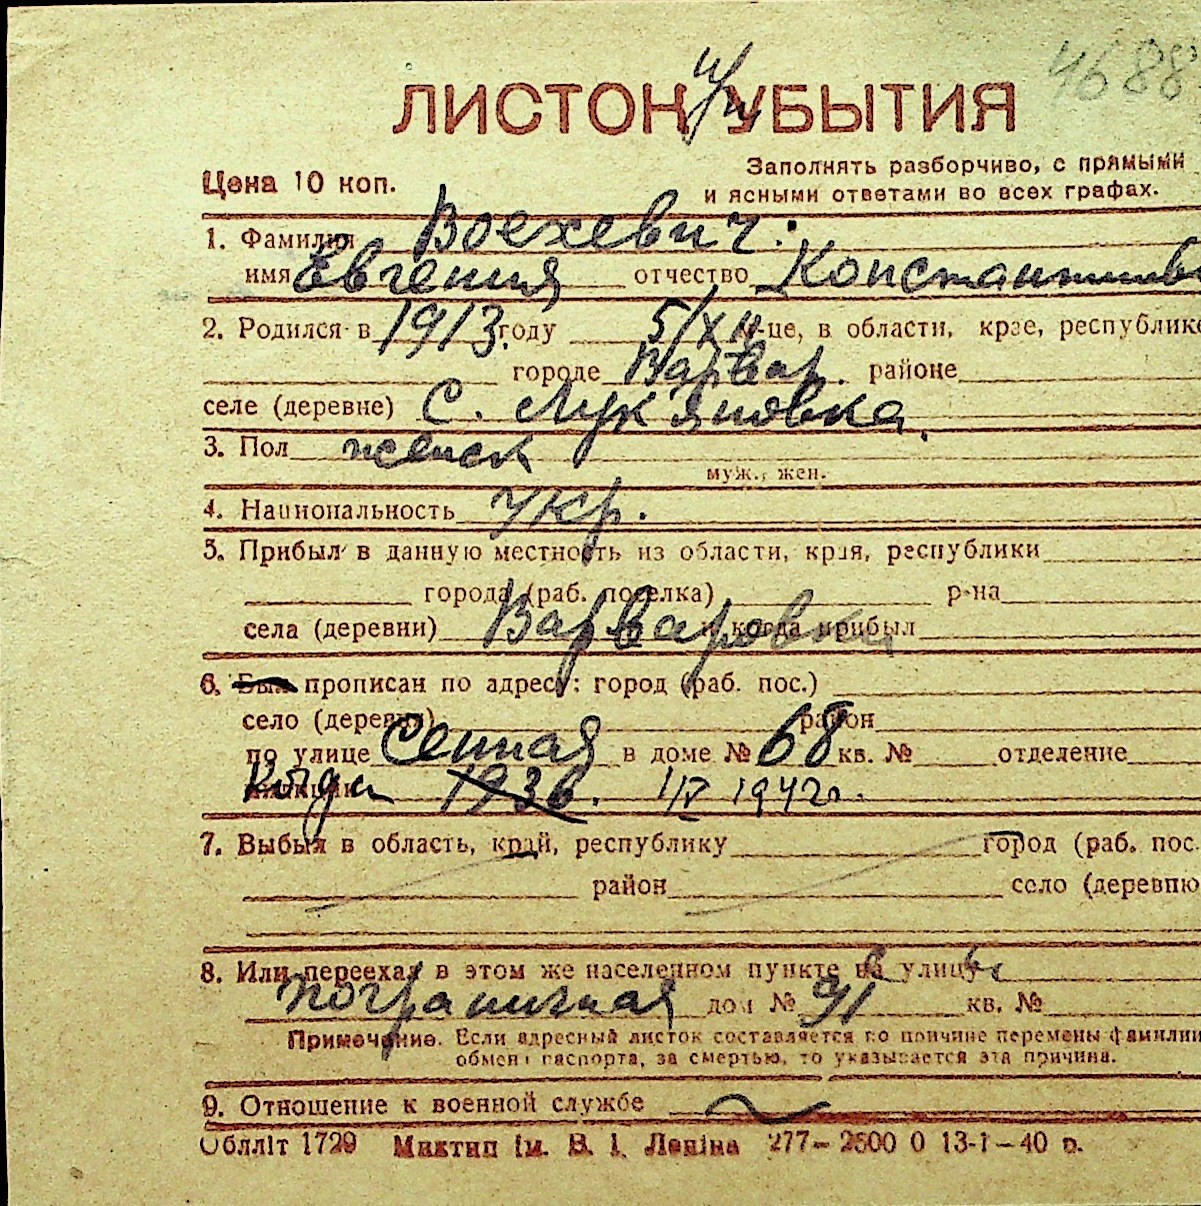 4688
ЛИСТОК УБЫТИЯ
Цена 10 коп.
Заполнять разборчиво, с прямыми
и ясными ответами во всех графах.
1. Фамилия Воехевич.
имя Евгения отчество Константинов
2. Родился в 1913 году 5/XII м-це, в области, крае, республике
городе Варвар. районе
селе (деревне) с. Лук'яновка.
3. Пол женск
муж., жен.
4. Национальность укр.
5. Прибыл в данную местность из области, края, республики
города (раб. поселка) р-на
села (деревни) Варваровки и когда прибыл
6. Был прописан по адресу: город (раб. пос.)
село (деревня) район
по улице Сенная в доме № 68 кв. № отделение
Когда 1936. 1/IV 1942г.
7. Выбыл в область, край, республику город (раб. пос.
район село (деревню
8. Или переехал в этом же населенном пункте на улицу
Пограничная дом № 91 кв. №
Примечание. Если адресный листок составляется по причине перемены фамилии
обмена паспорта, за смертью, то указывается эта причина.
9. Отношение к военной службе
Облліт 1729 Миктип ім. В. І. Леніна 277–2500 0 13-1–40 р.